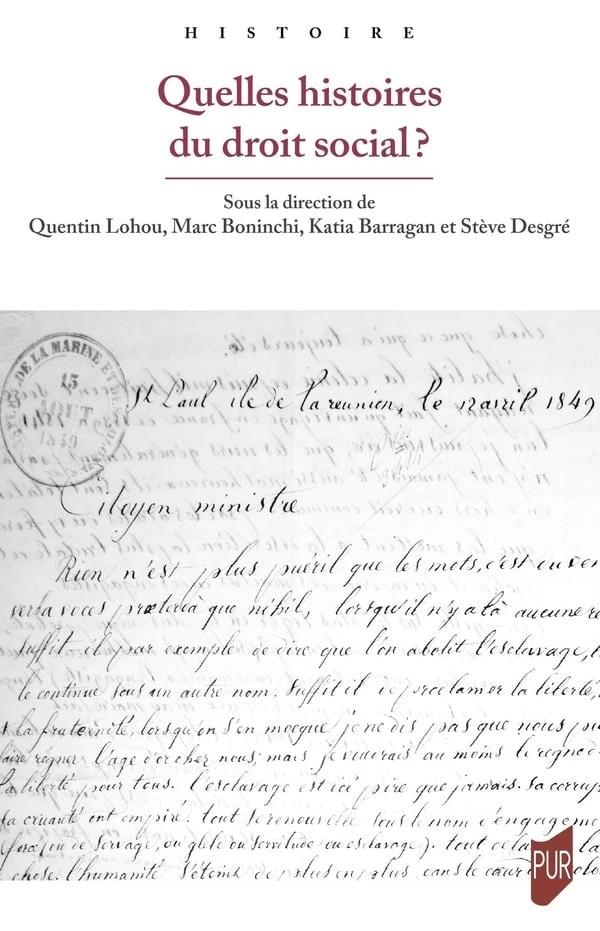 HISTOIRE
Quelles histoires
du droit social ?
Sous la direction de
Quentin Lohou, Marc Boninchi, Katia Barragan et Stève Desgré
DE LA MARINE ET
15
AOUT
1849
St Paul ile de la reunion, le 12 avril 1849
Citoyen ministre
Rien n'est plus puéril que les mots, c'est
verba voces prœtereà que nihil, lorsqu'il n'y a là aucune
suffit-il par exemple de dire que l'on abolit l'esclavage,
le continue sous un autre nom. Suffit il de proclamer la liberté,
la fraternité, lorsqu'on s'en mocque je ne dis pas que nous
faire régner l'age d'or chez nous; mais je voudrais au moins le regne
la liberté pour tous. l'esclavage est ici pire que jamais. Sa
sa cruauté ont empiré. tout se renouvelle sous le nom d'engageme
de servage, ou glèbe ou servitude ou esclavage). tout cela la
chose. l'humanité s'éteint de plus en plus dans le cœur
PUR